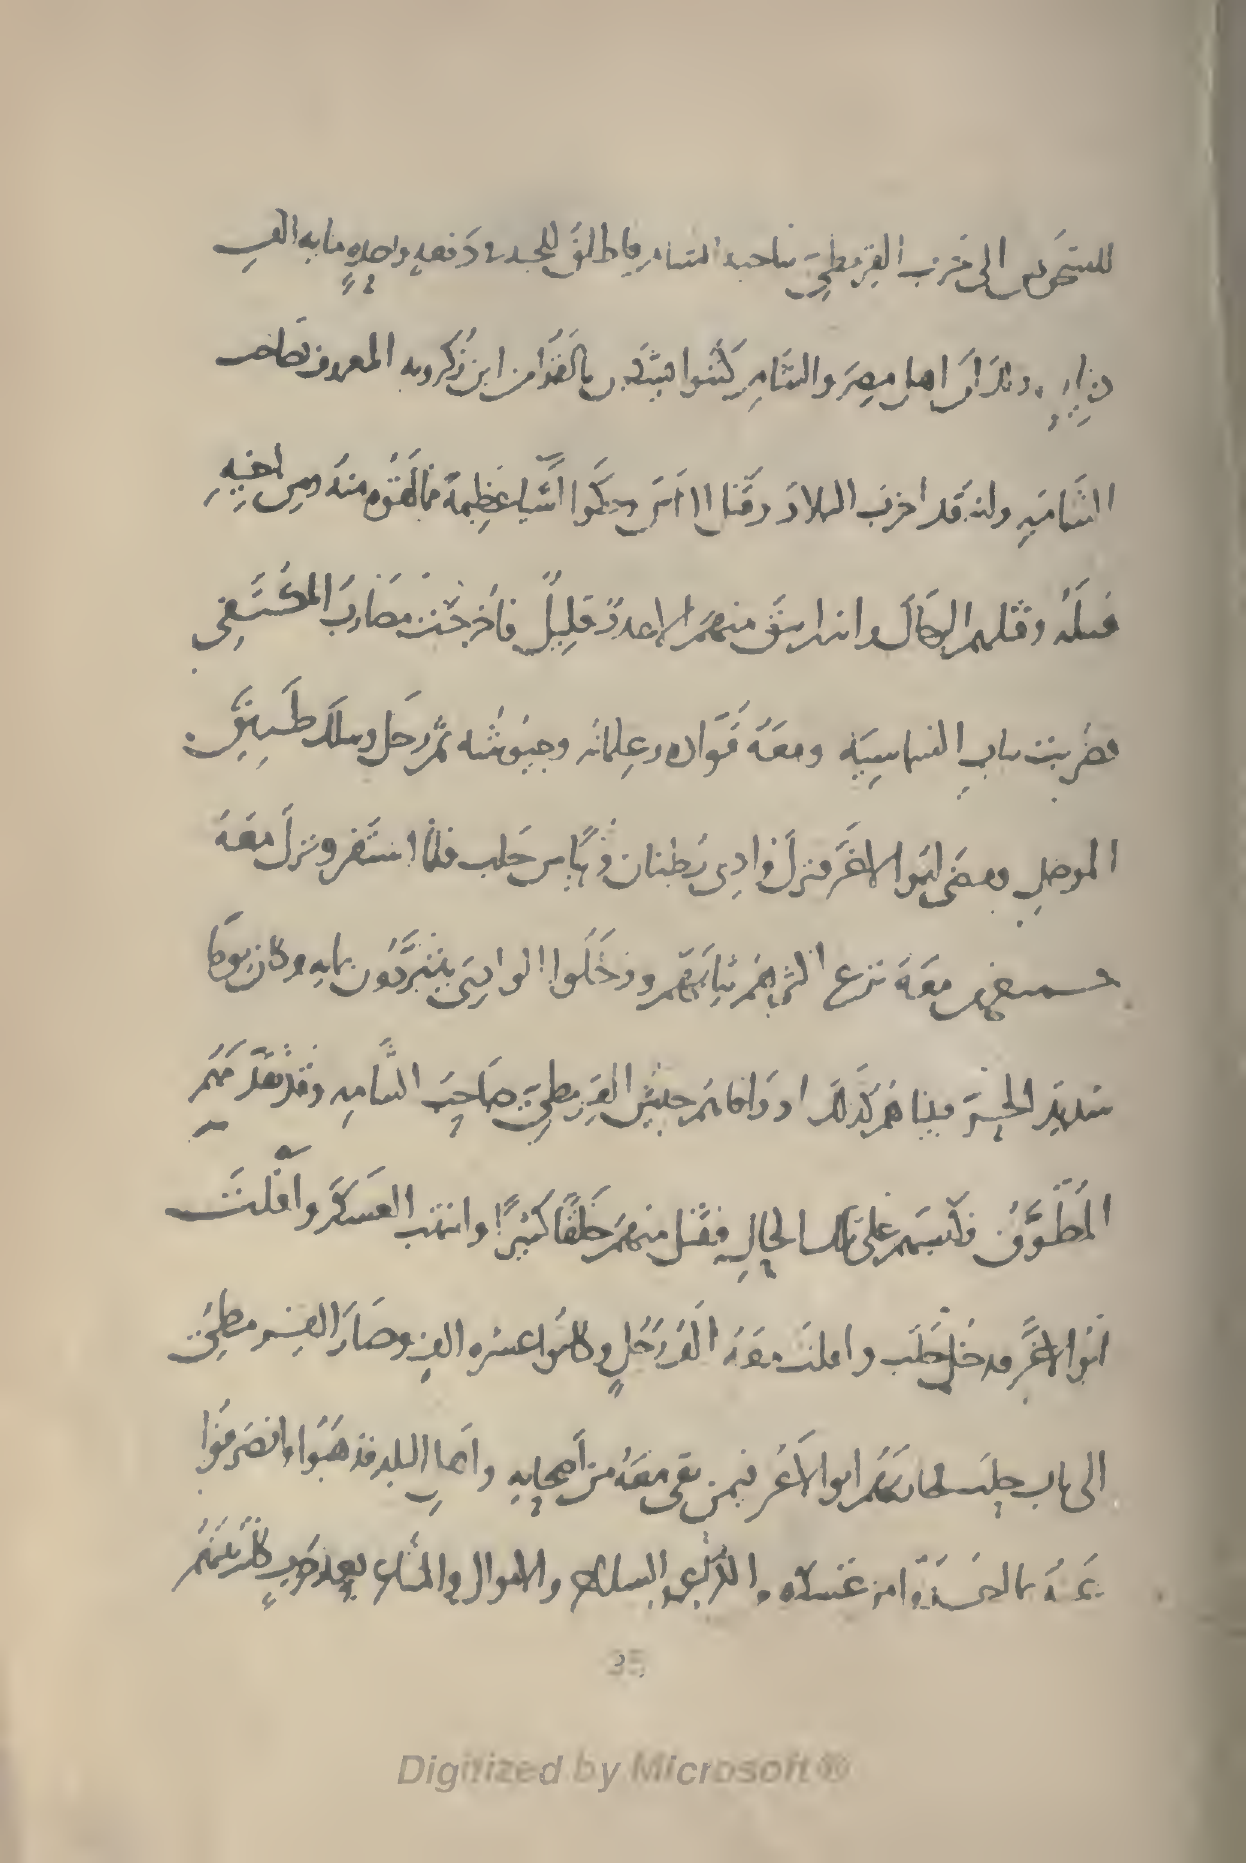 الى حرب القرمطى بناحية الشام فاطلق للجند فى دفعة واحدة مايه الف
دينار وذلك ان اهل مصر والشام كتبوا ما لقوا من ابن زكرويه المعروف بصاحب
الشامه وانه قد اخرب البلاد وقتل الناس عظيمة منه ومن اخيه
قبله وقتلهم الرجال وانه لم يبق منهم الا عدد قليل فاخرجت مضارب المكتفى
فضربت بباب الشماسية ومعه قواده وغلمانه وجيوشه ثم رحل وسلك طريق
الموصل ومضى ابو الاغر فنزل وادى بطنان قريبا من حلب فلما استقر ونزل معه
معه نزع اكثرهم ثيابهم ودخلوا الوادى يتبردون بمايه وكان يوما
شديد الحر فبينا هم كذلك اذ وافاهم جيش القرمطى صاحب الشامه وقد تقدمهم
المطوق فكبسهم على تلك الحال فقتل منهم خلقا كثيرا وانتهب العسكر وافلت
ابو الاغر فدخل حلب وافلت معه الف رجل وكانوا عشرة الف وصار القرمطى
الى باب حلب فحاربهم ابو الاغر فيمن بقى معه من اصحابه واهل البلد فذهبوا وانصرفوا
عنه بما من عسكره والكراع والسلاح والاموال والمتاع بعد حرب كانت بينهم
35
Digitized by Microsoft®